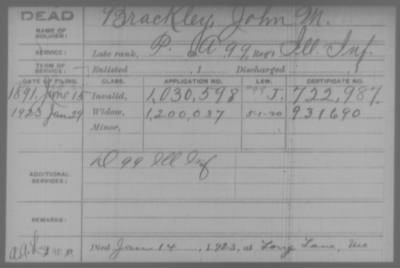 DEAD
NAME OF SOLDIER: Brackley, John M.
SERVICE: Late rank, P. Co. A 99, Reg't Ill. Inf.
TERM OF SERVICE: Enlisted , 1 Discharged , 1
DATE OF FILING. CLASS. APPLICATION NO. LAW. CERTIFICATE NO.
1891, June 15 Invalid, 1,030,598 J. 722,987
1923 Jan 29 Widow, 1,200,037 5-1-20 931690
Minor,
ADDITIONAL SERVICES: D 99 Ill Inf
REMARKS:
Died Jan 14, 1923, at Long Lane, Mo